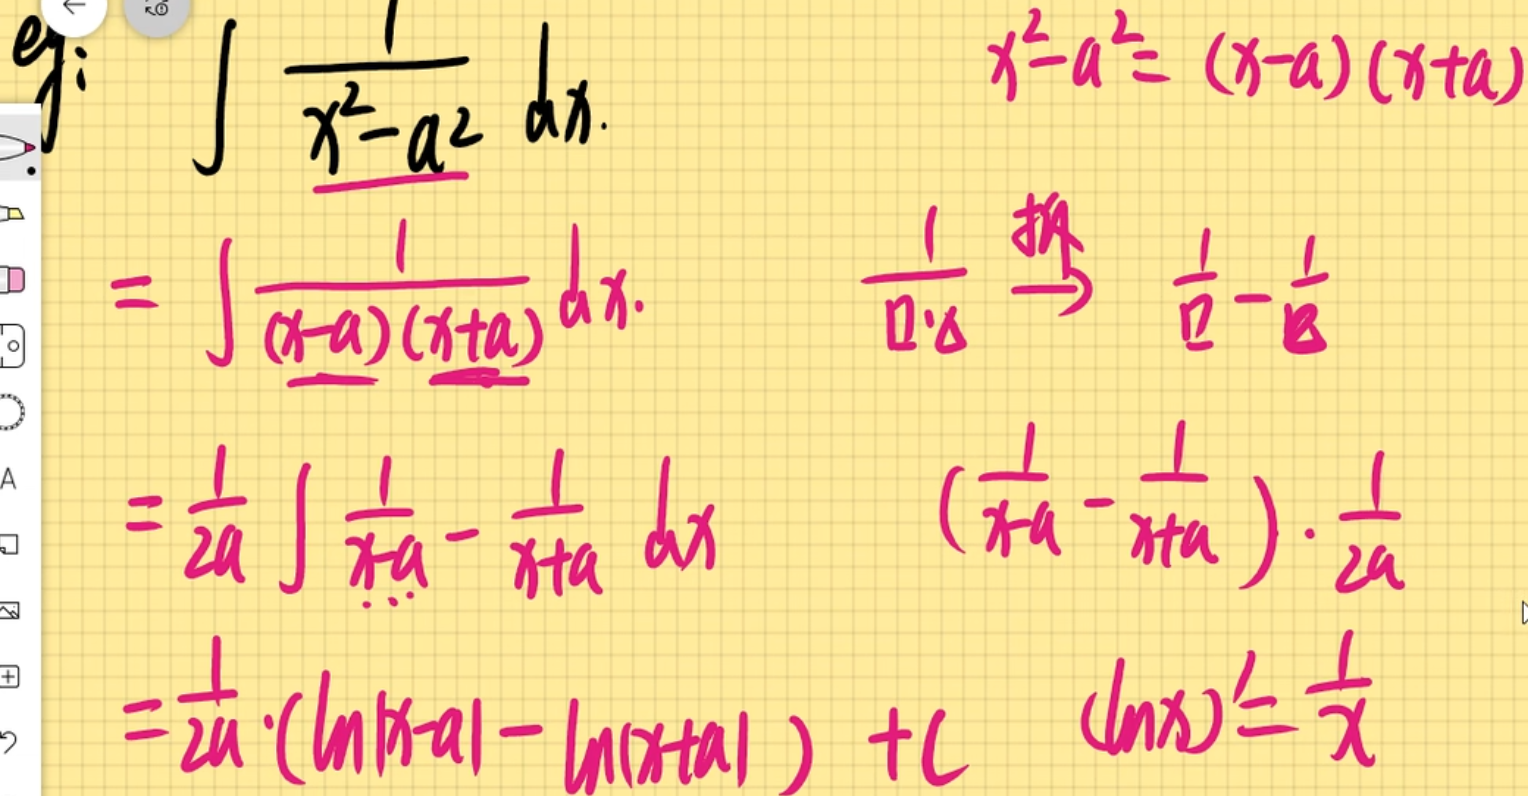 eg: ∫ 1/(x²-a²) dx.
x²-a² = (x-a)(x+a)
= ∫ 1/((x-a)(x+a)) dx.
1/(□·△) 拆→ 1/□ - 1/△
= 1/2a ∫ 1/(x-a) - 1/(x+a) dx
(1/(x-a) - 1/(x+a)) · 1/2a
= 1/2a · (ln|x-a| - ln|x+a|) + C
(lnx)' = 1/x
A